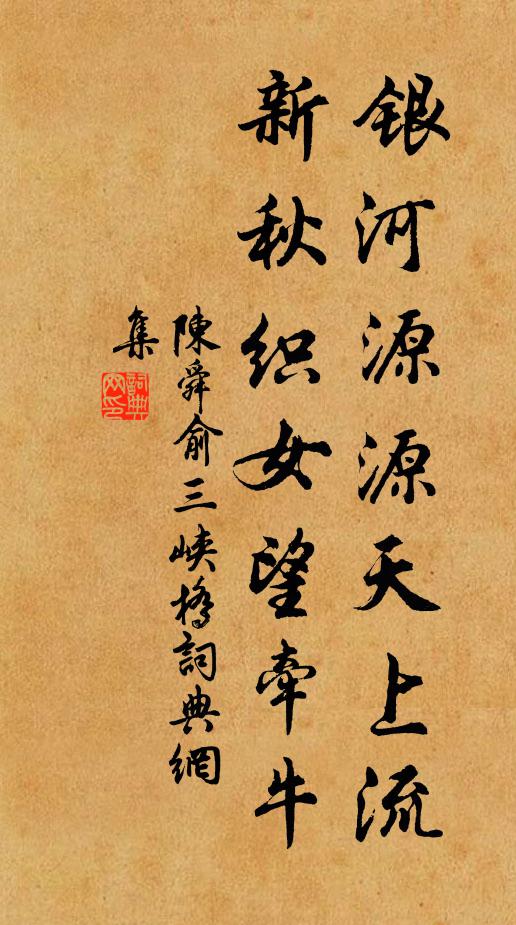 銀河源源天上流
新秋织女望牽牛
陳舜俞三峡橋詞典網
集
詞典
网印